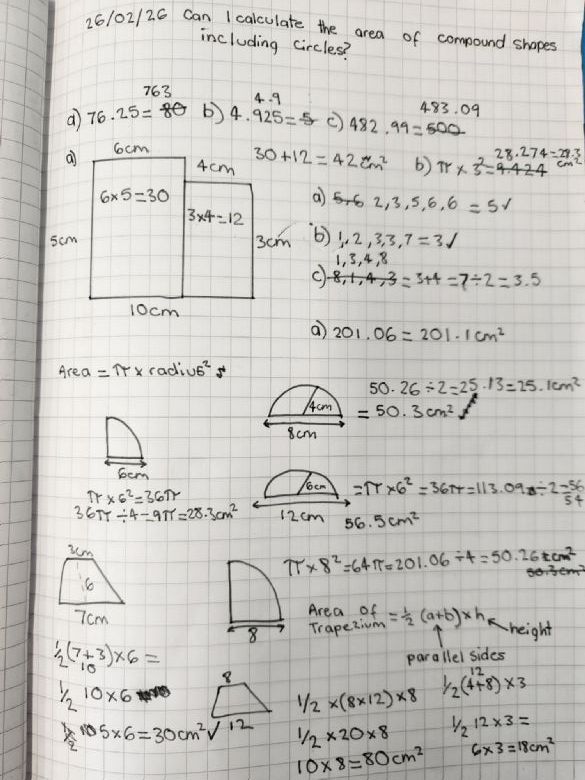 26/02/26 Can I calculate the area of compound shapes
including circles?
763
4.9
483.09
a) 76.25= 80 b) 4.925=5 c) 482.99=500
a) 6cm
4cm
30+12=42cm²
28.274=28.3
b) π×3²=9.424 cm²
6×5=30
3×4=12
5cm
3cm
10cm
a) 5,6 2,3,5,6,6 = 5✓
b) 1,2,3,3,7=3✓
1,3,4,8
c) 8,1,4,3=3+4=7÷2=3.5
a) 201.06=201.1cm²
Area = π × radius²
4cm
8cm
50.26÷2=25.13=25.1cm²
= 50.3cm²✓
6cm
π×6²=36π
36π÷4=9π=28.3cm²
6cm
12cm
=π×6²=36π=113.09÷2=56
54
56.5cm²
3cm
6
7cm
8
π×8²=64π=201.06÷4=50.26cm²
50.3cm²
Area of
Trapezium = ½ (a+b)×h
height
parallel sides
½(7+3)×6=
10
½ 10×6
½ 10 5×6=30cm²✓
8
12
1/2 ×(8×12)×8
1/2 ×20×8
10×8=80cm²
12
½(4+8)×3
½ 12×3=
6×3=18cm²